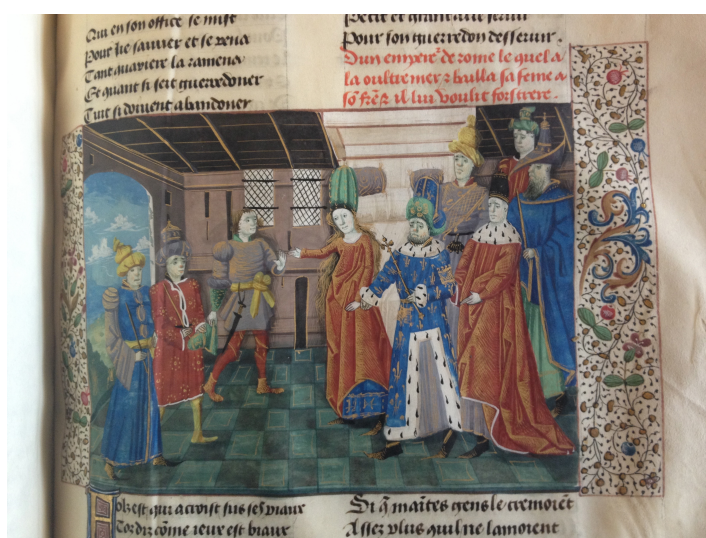 Qui en son office se mist
Pour lie sauuer et se
Tant quariere la ramena
Et quant si seit guerredoner
Tuit si doiuent abandoner
Petit et grant a seruir
Pour son guerredon desseruir.
Dun de rome le quel a
la oultre mer z bailla sa feme a
sō frēr il lui voulit forstrere.
est qui acroist sus ses
cōme ieux est biaux
Si q̃ maītes gens le cremoiēt
Assez plus quil ne lamoient